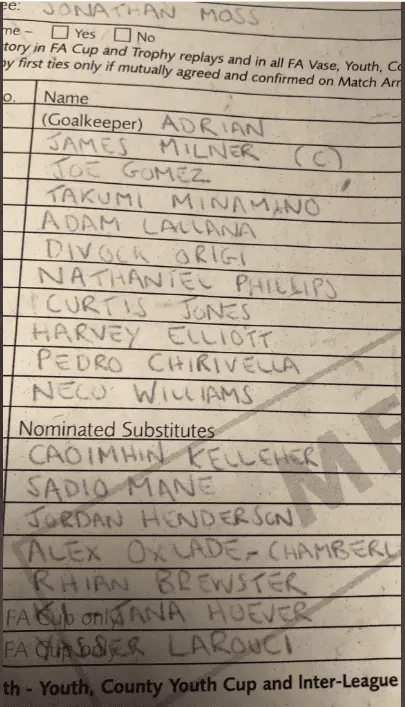 ee: JONATHAN MOSS
me – Yes No
tory in FA Cup and Trophy replays and in all FA Vase, Youth, Co
by first ties only if mutually agreed and confirmed on Match Arr
o. Name
(Goalkeeper) ADRIAN
JAMES MILNER (C)
JOE GOMEZ
TAKUMI MINAMINO
ADAM LALLANA
DIVOCK ORIGI
NATHANIEL PHILLIPS
CURTIS JONES
HARVEY ELLIOTT
PEDRO CHIRIVELLA
NECO WILLIAMS
Nominated Substitutes
CAOIMHIN KELLEHER
SADIO MANE
JORDAN HENDERSON
ALEX OXLADE-CHAMBERL
RHIAN BREWSTER
FA Cup only JANA HOEVER
FA Cup only YASSER LAROUCI
th - Youth, County Youth Cup and Inter-League